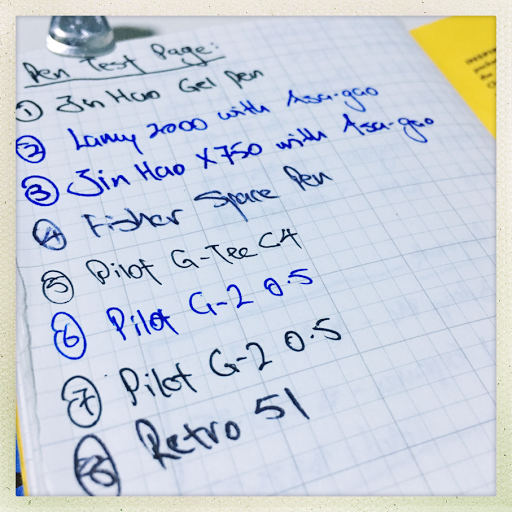 Pen Test Page:
① Jin Hao Gel Pen
② Lamy 2000 with Asa-gao
③ Jin Hao X750 with Asa-gao
④ Fisher Space Pen
⑤ Pilot G-Tec C4
⑥ Pilot G-2 0.5
⑦ Pilot G-2 0.5
⑧ Retro 51